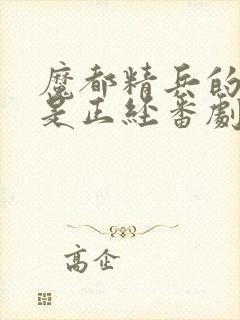 魔都精兵的
是正经番剧
高企